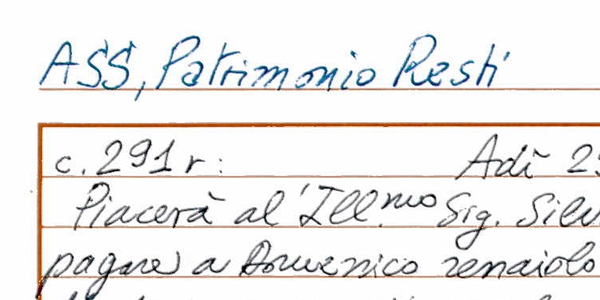 ASS, Patrimonio Resti
c. 291 r: Adì 25
Piacerà al'Ill.mo Sig. Silv
pagare a Domenico renaiolo